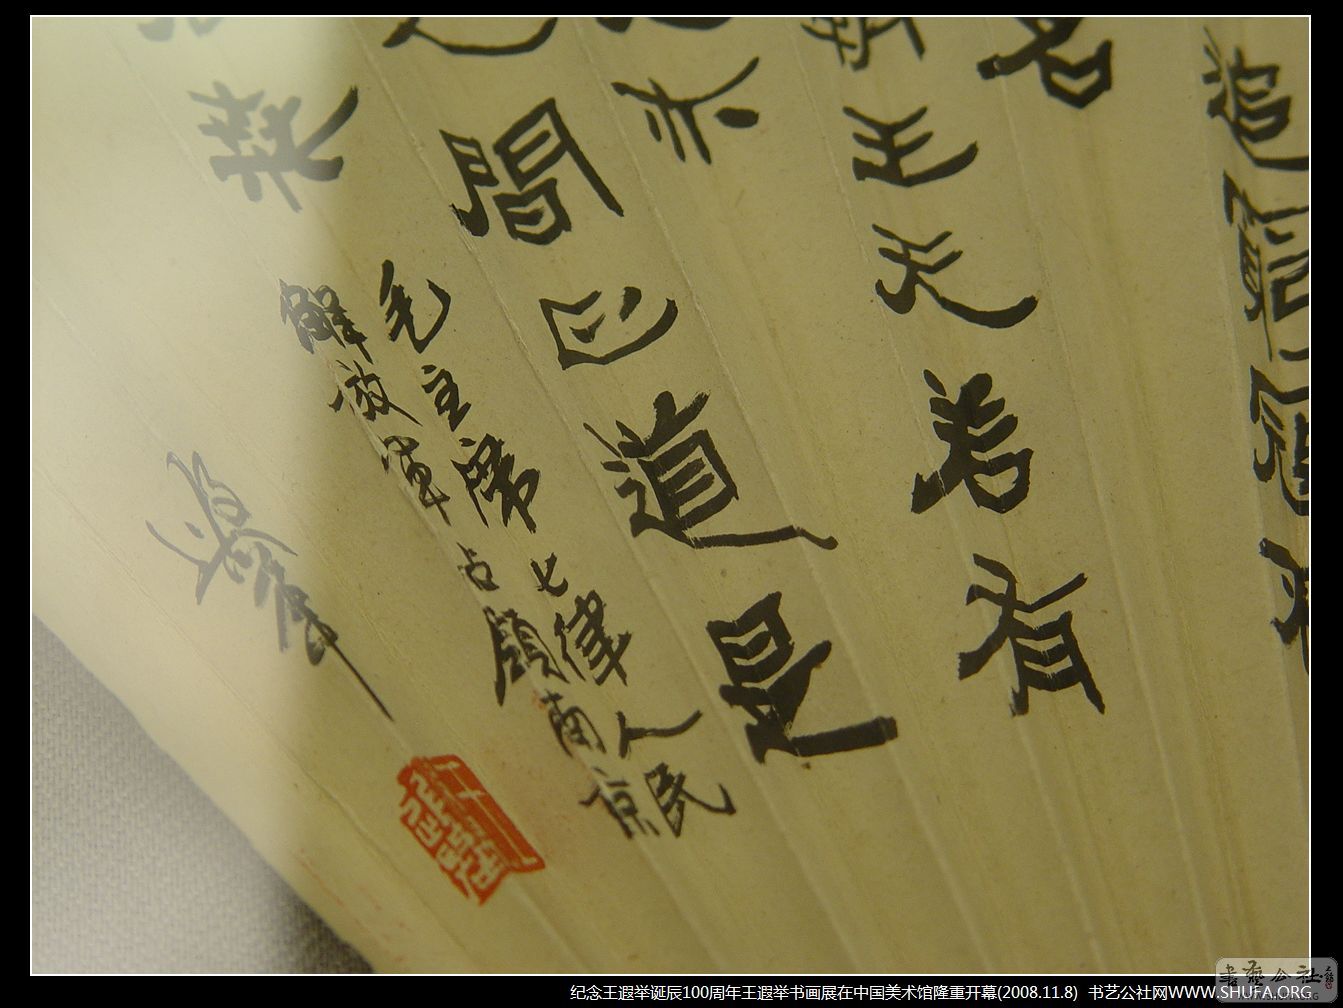 追窮寇不
名
王天若有
亦
人間正道是
桑
毛主席七律人民
解放軍占領南京
纪念王遐举诞辰100周年王遐举书画展在中国美术馆隆重开幕(2008.11.8) 书艺公社网WWW.SHUFA.ORG
書藝公社